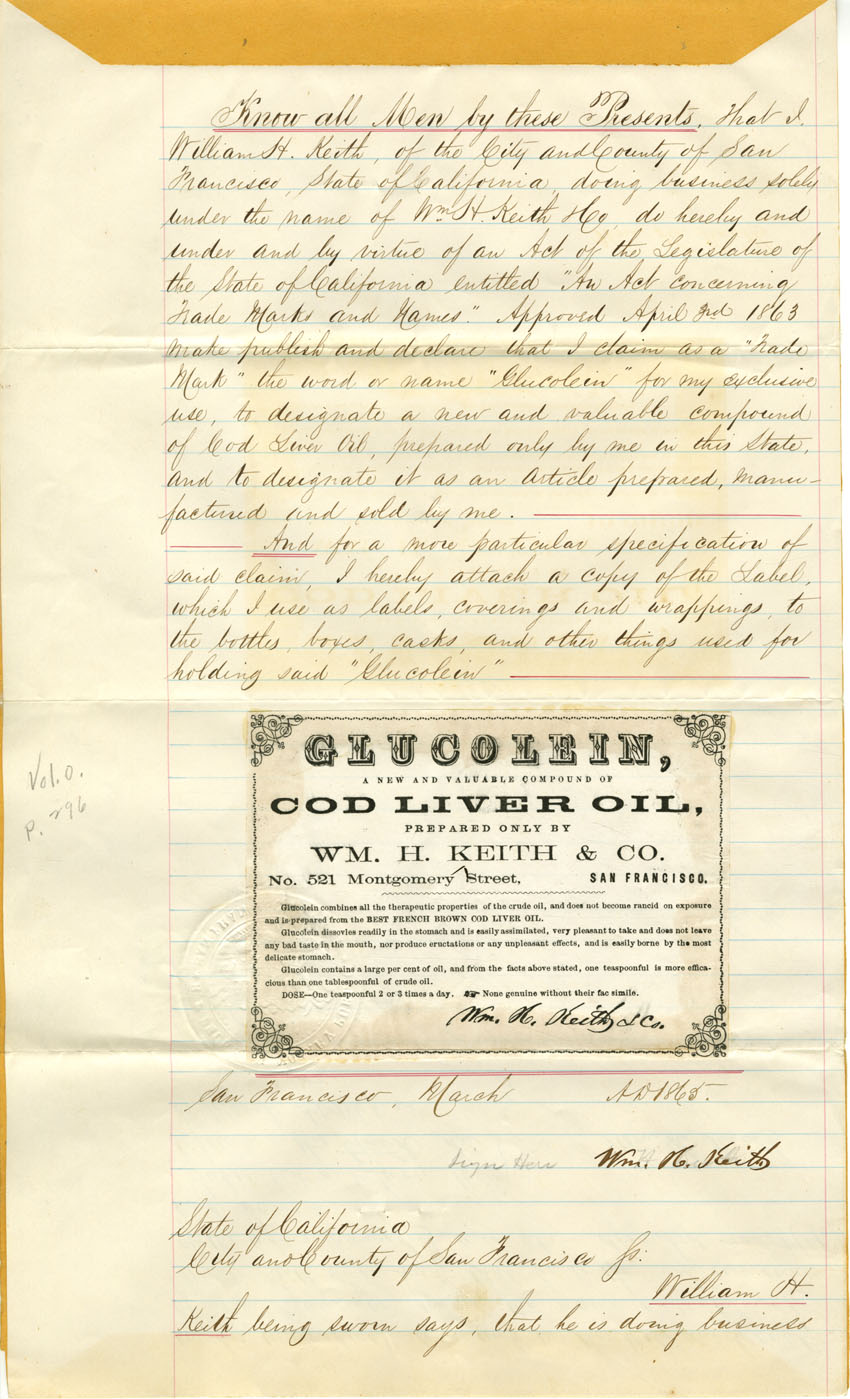 Know all Men by these Presents, That I.
William H. Keith, of the City and County of San
Francisco, State of California, doing business solely
under the name of Wm H. Keith & Co, do hereby and
under and by virtue of an Act of the Legislature of
the State of California entitled "An Act concerning
Trade Marks and Names." Approved April 3rd 1863
make publish and declare that I claim as a "Trade
Mark" the word or name "Glucolein" for my exclusive
use, to designate a new and valuable compound
of Cod Liver Oil, prepared only by me in this State,
and to designate it as an Article prepared, manu-
factured and sold by me.
And for a more particular specification of
said claim, I hereby attach a copy of the Label,
which I use as labels, coverings and wrappings, to
the bottles, boxes, casks, and other things used for
holding said "Glucolein"
Vol. 0.
P. 296
GLUCOLEIN,
A NEW AND VALUABLE COMPOUND OF
COD LIVER OIL,
PREPARED ONLY BY
WM. H. KEITH & CO.
No. 521 Montgomery Street, SAN FRANCISCO.
Glucolein combines all the therapeutic properties of the crude oil, and does not become rancid on exposure
and is prepared from the BEST FRENCH BROWN COD LIVER OIL.
Glucolein dissovles readily in the stomach and is easily assimilated, very pleasant to take and does not leave
any bad taste in the mouth, nor produce eructations or any unpleasant effects, and is easily borne by the most
delicate stomach.
Glucolein contains a large per cent of oil, and from the facts above stated, one teaspoonful is more effica-
cious than one tablespoonful of crude oil.
DOSE—One teaspoonful 2 or 3 times a day. ☞ None genuine without their fac simile.
Wm. H. Keith & Co.
San Francisco, March AD 1865.
Sign Here Wm. H. Keith
State of California
City and County of San Francisco Ss:
William H.
Keith being sworn says, that he is doing business